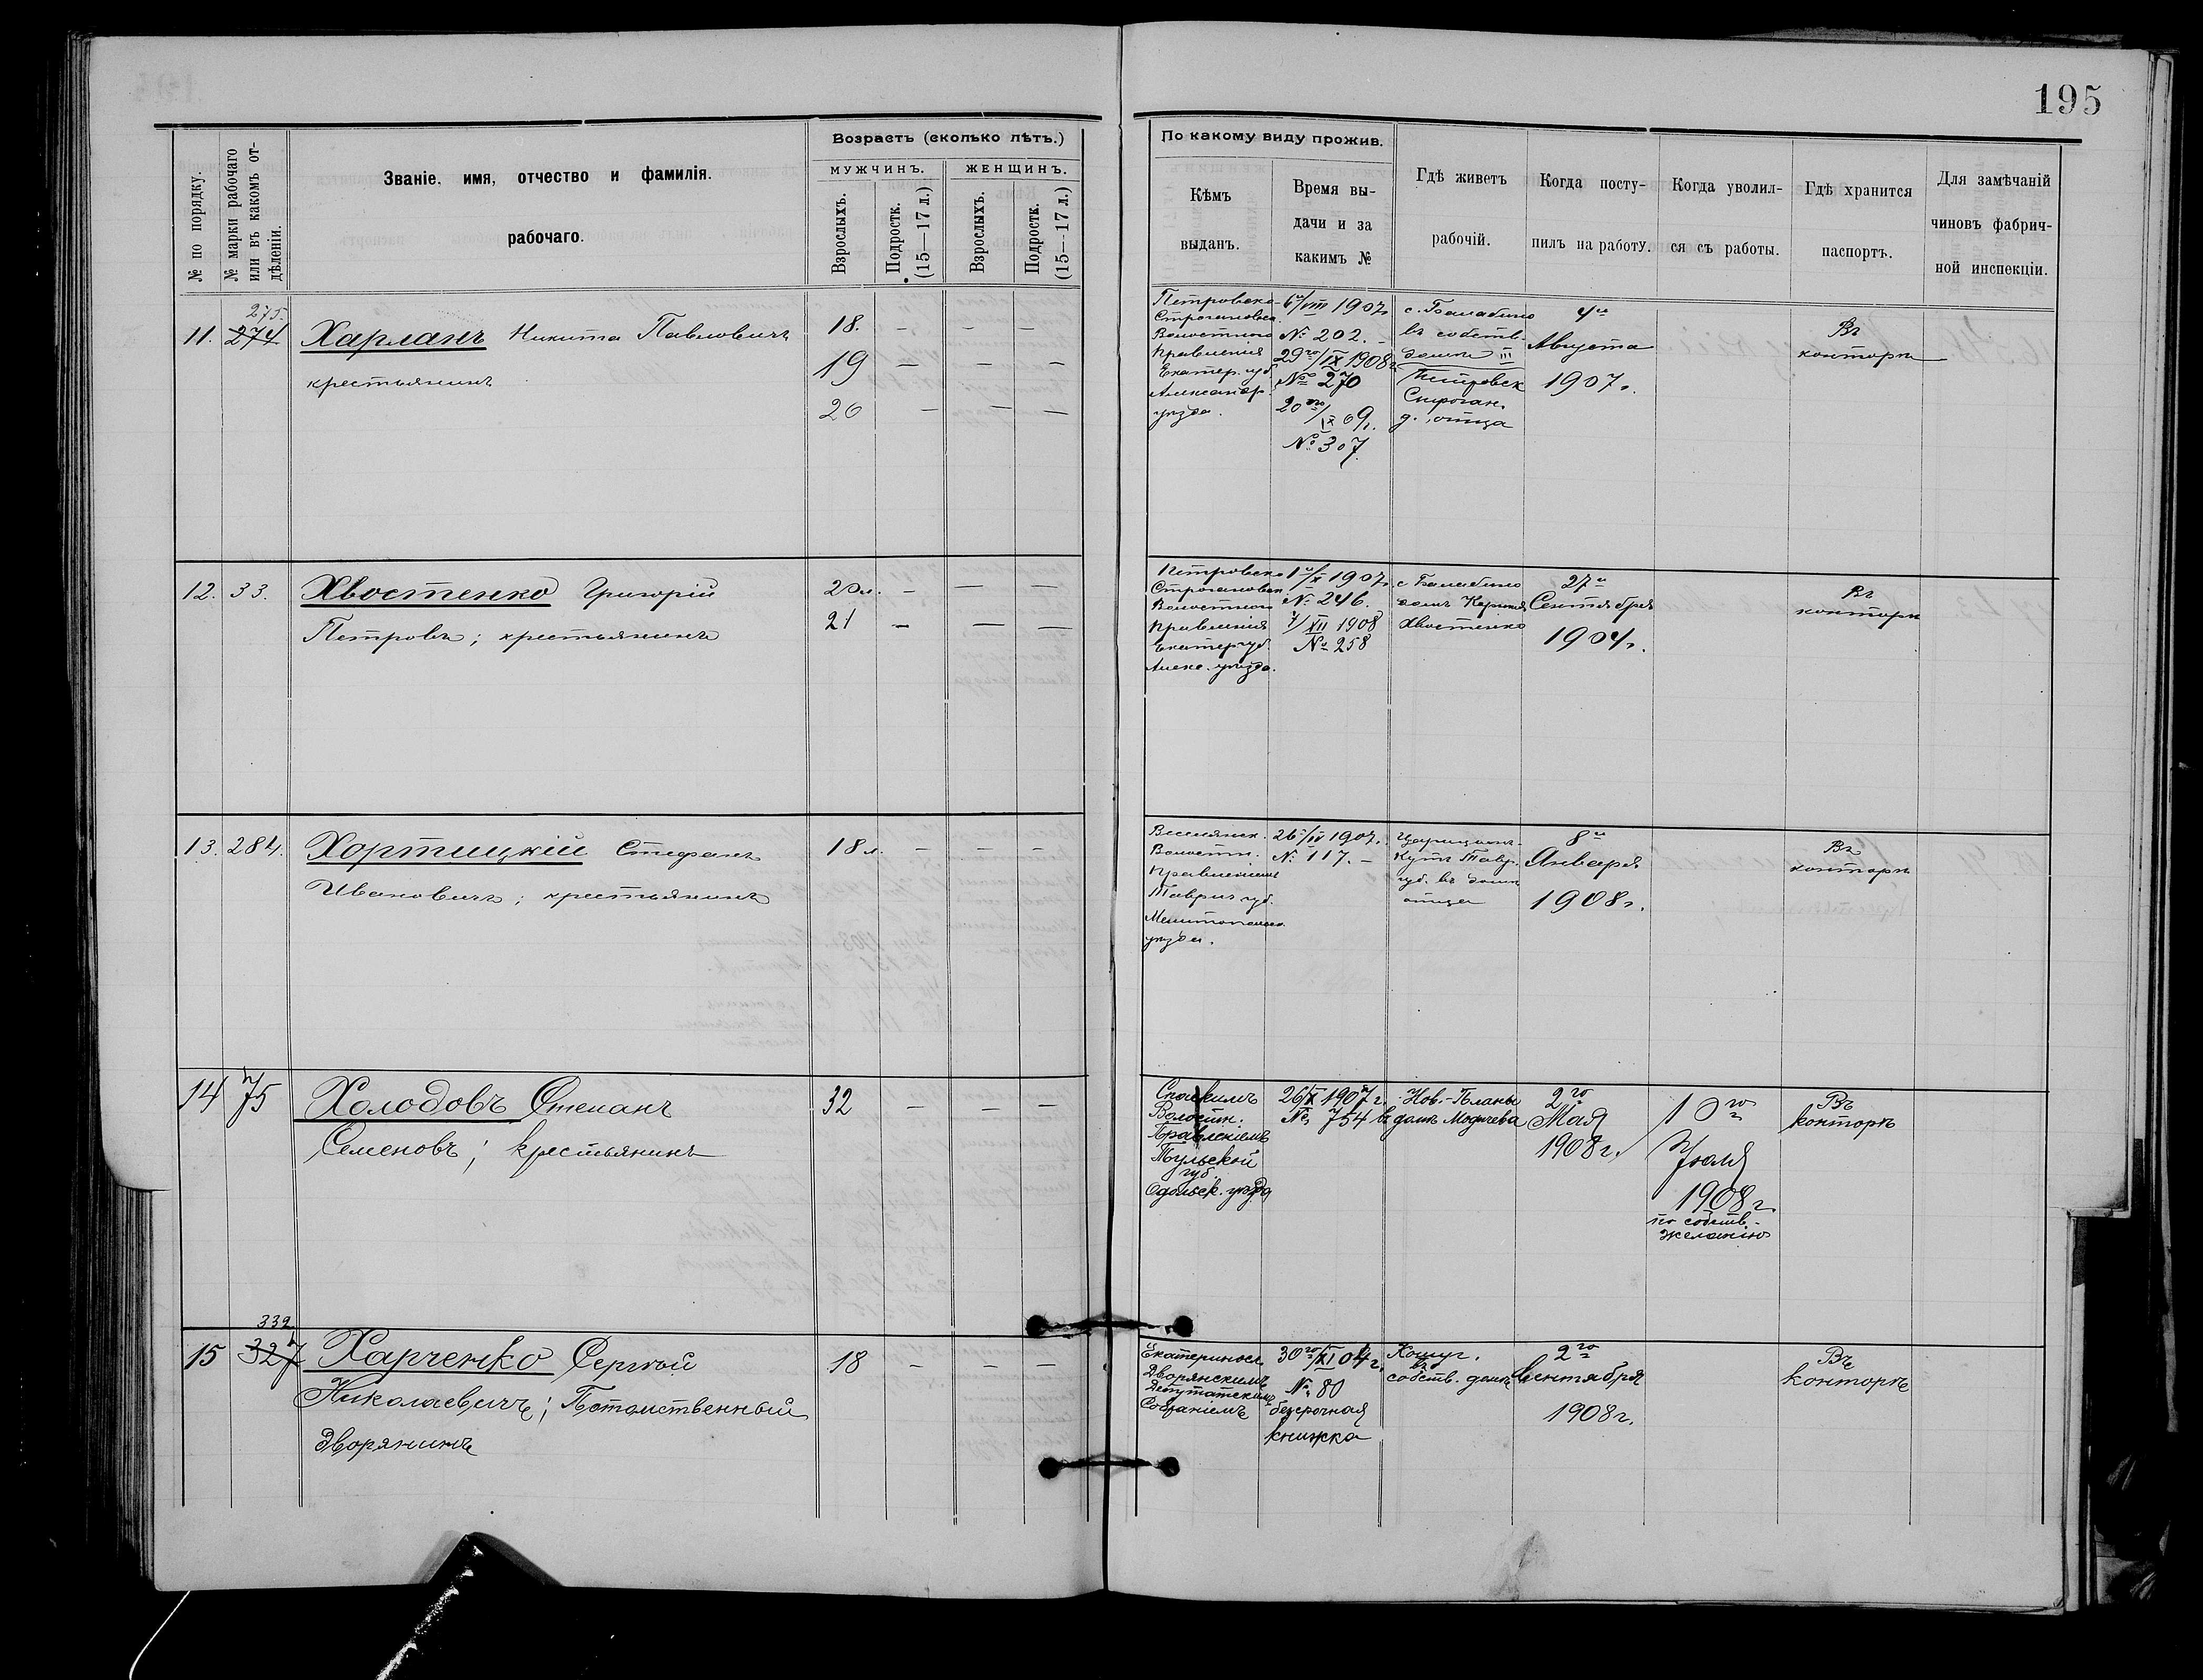 195
№ по порядку.
№ марки рабочаго
или въ какомъ от-
дѣленіи.
Званіе, имя, отчество и фамилія.
рабочаго.
Возрастъ (сколько лѣтъ.)
МУЖЧИНЪ.
ЖЕНЩИНЪ.
Взрослыхъ.
Подростк.
(15—17 л.)
Взрослыхъ.
Подростк.
(15—17 л.)
По какому виду прожив.
Кѣмъ
выданъ.
Время вы-
дачи и за
какимъ №
Гдѣ живетъ
рабочій.
Когда посту-
пилъ на работу.
Когда уволил-
ся съ работы.
Гдѣ хранится
паспортъ.
Для замѣчаній
чиновъ фабрич-
ной инспекціи.
275.
11. 274 Харланъ Никита Павловичъ
крестьянинъ
18. — — —
19 — — —
20 — — —
Петровско-
Строгановск.
Волостного
Правленія
Екатер. губ.
Александр.
уѣзда.
6го/VIII 1907г.
№ 202. —
29го/IX 1908г.
№ 270
20го/IX 09г.
№ 307.
с. Балабино
въ собств.
домѣ III
Петровск
Строган.
д. отца
4го
Августа
1907г.
Въ
конторѣ
12. 33. Хвостенко Григорій
Петровъ; крестьянинъ
20л. — — —
21 — — —
Петровско
Строгановск.
Волостного
Правленія
Екатер губ.
Алекс. уѣзда.
1го/X 1907г.
№ 246.
7/XII 1908
№ 258
с Балабино
домъ
Хвостенко
27го
Сентября
1904г.
Въ
конторѣ
13. 284. Хортицкій Стефанъ
Ивановичъ; крестьянинъ
18л. — — —
Волостн.
Правленіемъ
Таврич губ.
Мелитопольск.
уѣзда.
26го/IV 1907г.
№ 117. —
Царицынъ-
Кутъ Тавр.
губ. въ домѣ
отца
8го
Января
1908г.
Въ
конторѣ
14 75 Холодовъ Степанъ
Семеновъ; крестьянинъ
32 — — —
Волостн.
Правленіемъ
Тульской
губ.
Одоевск. уѣзда
26/IX 1907г.
№ 754
Нов.-Планы
въ домѣ
2го
Мая
1908г.
10го
Іюля
1908г.
по собств.-
желанію
Въ
конторѣ
332.
15 327 Харченко Сергѣй
Николаевичъ; Потомственный
дворянинъ
18 — — —
Екатеринос.
Дворянскимъ
Депутатскимъ
Собраніемъ
30го/XI 04г.
№ 80
безсрочная
книжка
Кошуг.
въ
собств. домѣ
2го
Сентября
1908г.
Въ
конторѣ